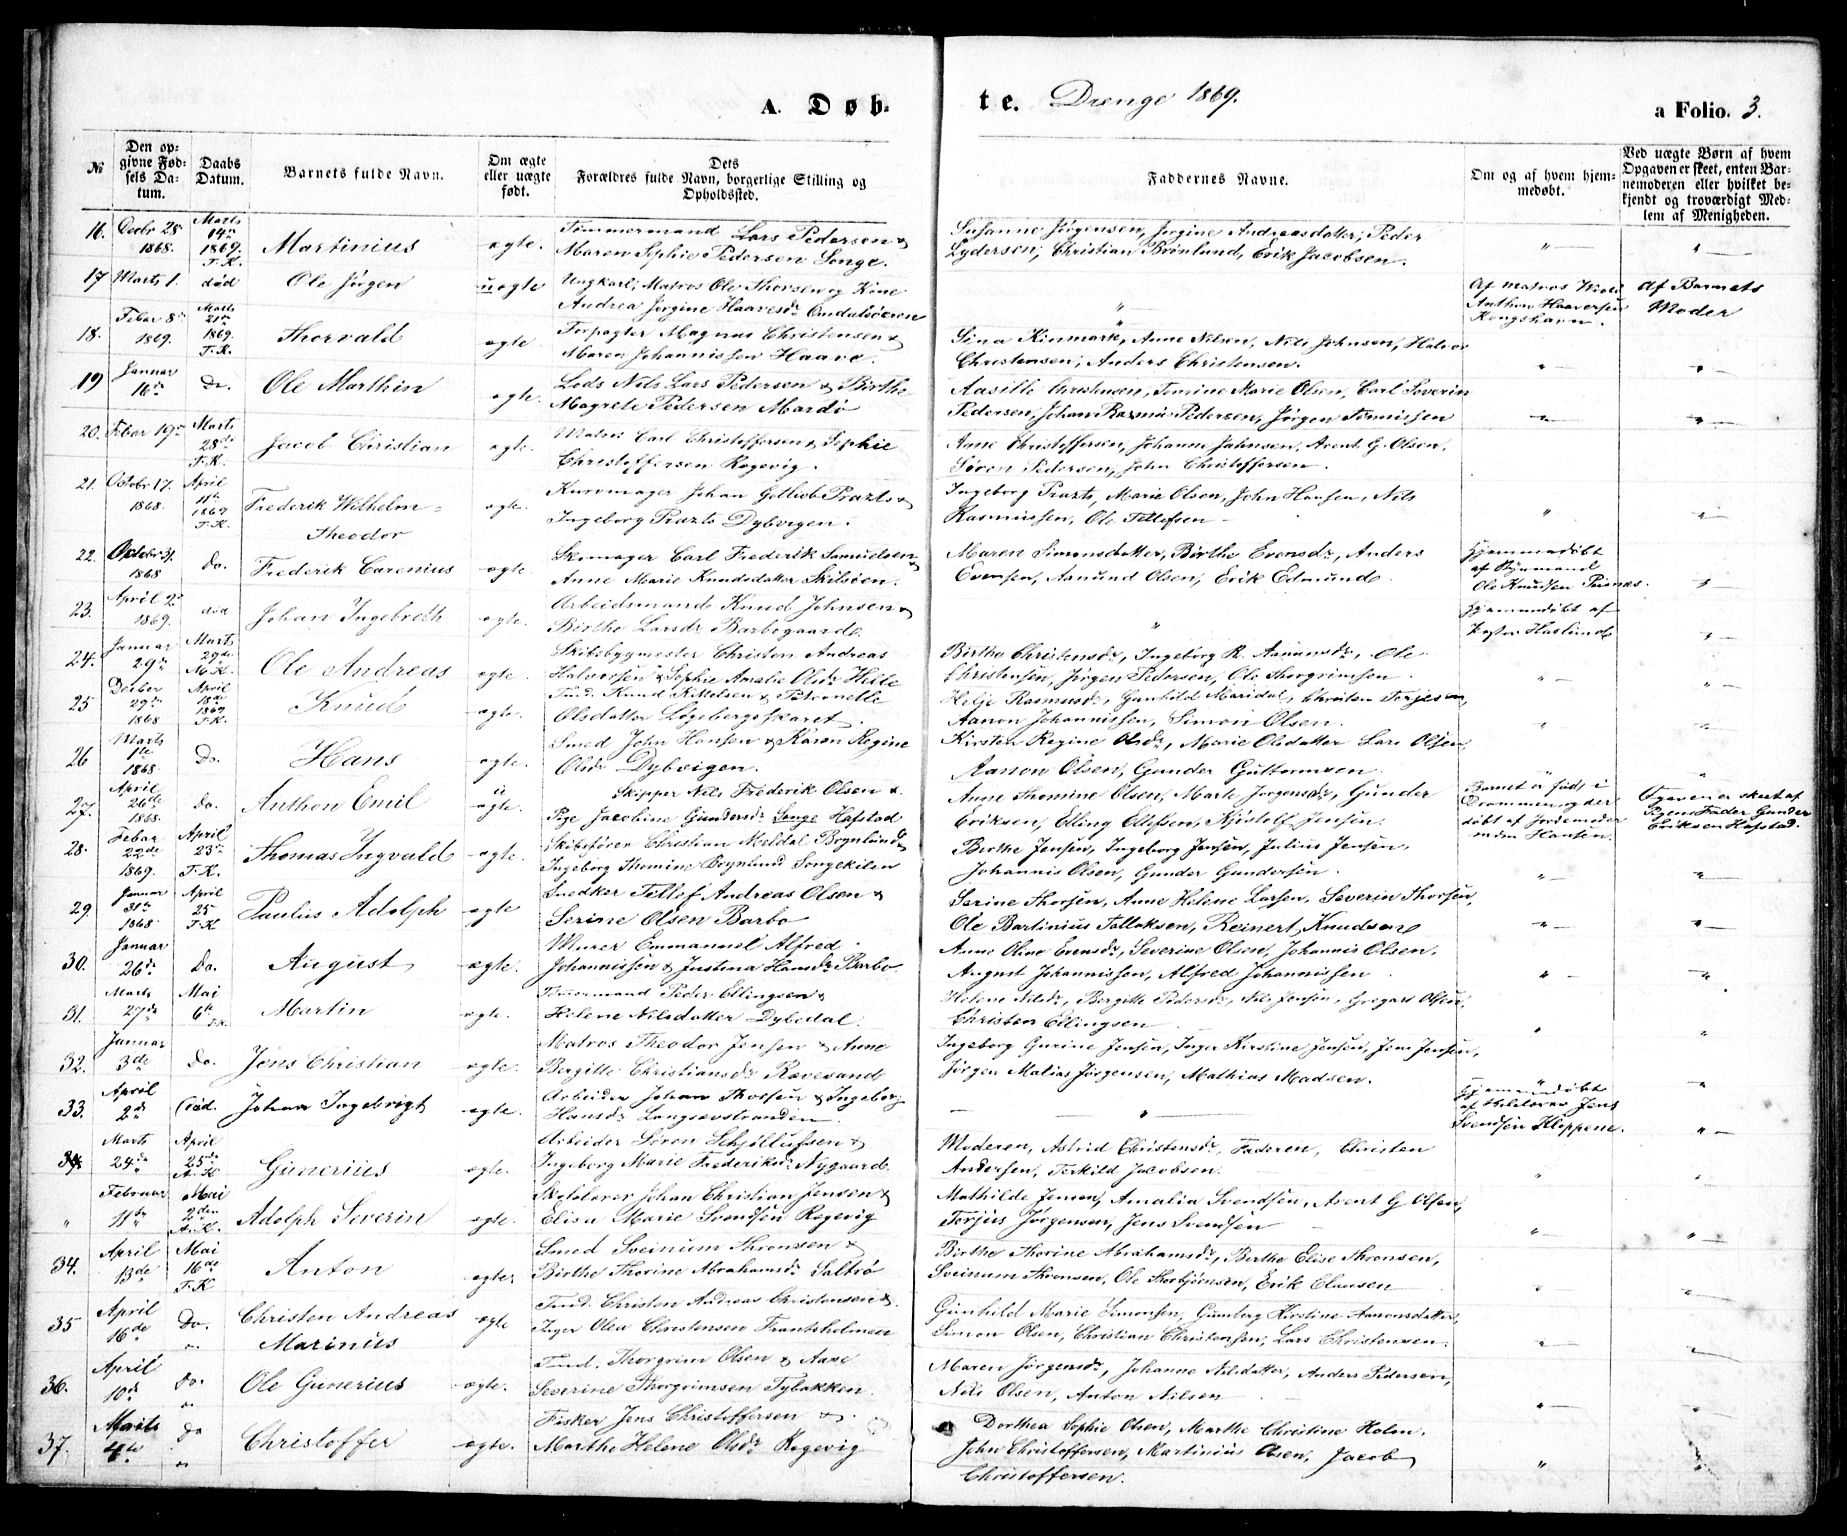 A. Døb-
te. Drenge 1869.
a Folio. 3.
№
Den op-
givne Fød-
sels Da-
tum.
Daabs
Datum.
Barnets fulde Navn.
Om ægte
eller uægte
født.
Dets
Forældres fulde Navn, borgerlige Stilling og
Opholdssted.
Faddernes Navne.
Om og af hvem hjem-
medøbt.
Ved uægte Børn af hvem
Opgaven er skeet, enten Bar-
nemoderen eller hvilket be-
kjendt og troværdigt Med-
lem af Menigheden.
16. Decbr 28 1868. Marts 14de 1869. T.K. Martinius ægte. Tømmermand Lars Pedersen &
Maren Sophie Pedersen Songe.
Susanne Jørgensen, Jørgine Andreasdatter, Peder
Lydersen, Christian Brönlund, Erik Jacobsen.
17 Marts 1. død Ole Jørgen uægte Ungkarl, Matros Ole Thorsen og Kone
Andrea Jørgine Haavesdr
Af Matros
Anthon Haaversen
Kongshavn.
Af Barnets
Moder
18. Febar 8de 1869. Marts 21de 1869. T.K. Thorvald ægte. Forpagter Magnus Christensen &
Maren Johannissen Haave.
Sina Kinmark, Anne Nilsen, Nils Johnsen, Halvor
Christensen, Anders Christensen.
19 Januar 16de Do. Ole Marthin ægte. Lods Nils Lars Pedersen & Birthe
Magrete Pedersen Mardö
Aasille Christensen, Tomine Marie Olsen, Carl Severin
Pedersen, Johan Rasmus Pedersen, Jørgen Tønnissen
20. Febar 19de Marts 28de T.K. Jacob Christian ægte. Matros Carl Christoffersen & Sophie
Christoffersen Kogevig.
Anne Christoffersen, Johanne Johnsen, Arent G. Olsen,
Søren Pedersen, John Christoffersen.
21. Octobr 17. 1868. April 11te 1869 T.K. Frederik Wilhelm
Theodor ægte. Kurvmager Johan Gotlieb Prazts &
Ingeborg Prazts Dybvigen.
Ingeborg Prazts, Marie Olsen, John Hansen, Nils
Rasmussen, Ole Tellefsen
22. Octobr 31. 1868 Do. Frederik Carenius ægte. Skomager Carl Frederik Samuelsen &
Anne Marie Knudsdatter Skilsöen.
Maren Simonsdatter, Birthe Evensdr, Anders
Evensen, Aanund Olsen, Erik Edmund.
Hjemmedøbt
af Styrmand
Ole Knudsen
23. April 2de 1869. død Johan Ingebreth ægte. Arbeidsmand Knud Johnsen &
Birthe Larsdr Barbogaard.
Hjemmedøbt af
Haslund
24. Januar 29de Marts 29de Ole Andreas ægte. Skibsbygmester Christen Andreas
Halvorsen & Sophie Amalie Olsdr Helle
Birthe Christensdr, Ingeborg R. Aanunsdr, Ole
Christensen, Jørgen Pedersen, Ole Thorgrimsen.
25 Decber 29de 1868 April 18de 1869 T.K. Knud ægte. Tind. Knud Kittelsen & Petronelle
Olsdatter Lögebergskaret.
Helje Rasmusdr, Gunhild Maridal, Christen Terjesen,
Aanon Johannissen, Simon Olsen.
26 Marts 1te 1868. Do. Hans ægte. Smed John Hansen & Karen Regine
Olsdr Dybvigen.
Kirsten Regine Olsdr, Marie Olsdatter, Lars Olsen,
Aanon Olsen, Gunder Guttormsen
27. April 26de 1868. Do. Anthon Emil uægte. Skipper Nils Frederik Olsen &
Pige Jacobine Gundersdr Songe Hafstad
Anne Thomine Olsen, Marte Jørgensdr, Gunder
Eriksen, Elling Ellefsen, Kjøstolf Jensen.
Barnet er født i
Drammen og der
døbt af Jordemoder
Hansen.
Opgaven er skeet af
Pigens Fader Gunder
Eriksen Hafstad.
28. Febar 22de 1869. April 23de T.K. Thomas Ingvald ægte. Skibsfører Christian Meldal Brynlund &
Ingeborg Thomine Brynlund Songekilen
Birthe Jensen, Ingeborg Jensen, Julius Jensen,
Johannis Olsen, Gunder Gundersen.
29. Januar 31te 1868 April 25 T.K Paulus Adolph ægte Snedker Tellef Andreas Olsen &
Serine Olsen Barbo
Serine Thorsen, Anne Helene Larsen, Severin Thorsen,
Ole Bartinius Tallaksen, Reinert Knudsen
30. Januar 26de Do. August ægte. Murer Emmanuel Alfred
Johannissen & Justina Hansdr Barbo
Anne Oline Evensdr, Severine Olsen, Johannis Olsen,
August Johannissen, Alfred Johannissen
31. Marts 27de Mai 6te T.K. Martin ægte. Tømmermand Peder Ellingsen &
Helene Nilsdatter Dybedal.
Helene Nilsdr, Bergitte Pedersdr, Nils Jensen, Gregart Olsen,
Christen Ellingsen
32. Januar 3de Do. Jens Christian ægte. Matros Theodor Jensen & Anne
Bergitte Christiansdr Rævesand
Ingeborg Gurine Jensen, Inger Kirstine Jensen, Jens Jensen,
Jørgen Malias Jørgensen, Mathias Madsen.
33. April 2de død. Johan Ingebrigt ægte. Arbeider Johan Thorsen & Ingeborg
Hansdr Langsævstranden.
Hjemmedøbt
af Skolelærer Jens
Svendsen Kloppene.
34 Marts 24de April 25de A.K Gunerius ægte. Arbeider Søren Schjøllufssen &
Ingeborg Marie Frederiksdr Nygaard.
Moderen, Astrid Christensdr, Faderen, Christen
Andersen, Terkild Jacobsen.
" Februar 11te Mai 2den A.K. Adolph Severin ægte. Skolelærer Johan Christian Jensen &
Elisa Marie Svendsen Kogevig
Mathilde Jensen, Amalia Svendsen, Arent G Olsen,
Torjus Jørgensen, Jens Svendsen
34. April 13de Mai 16de T.K Anton ægte, Smed Sveinum Thronsen &
Birthe Thorine Abrahamsdr Saltrö
Birthe Thorine Abrahamsdr, Berthe Elise Thronsen,
Sveinum Thronsen, Ole Thorbjørnsen, Erik Clausen
35 April 16de Do. Christen Andreas
Marinius ægte Tind. Christen Andreas Christensen &
Inger Olea Christensen Frantsholmen
Gunhild Marie Simonsen, Gunborg Kirstine Aanonsdatter,
Simon Olsen, Christian Christensen, Lars Christensen.
36. April 10de Do. Ole Gunerius ægte. Tind. Thorgrim Olsen & Aase
Severine Thorgrimsen Tybakken.
Maren Jørgensdr, Johanne Nilsdatter, Anders Pedersen,
Nils Olsen, Anton Nilsen
37. Marts 4de Do Christoffer ægte. Fisker Jens Christoffersen &
Marthe Helene Olsdr Kogevig
Dorthea Sophie Olsen, Marthe Christine Holm,
John Christoffersen, Martinius Olsen, Jacob
Christoffersen.